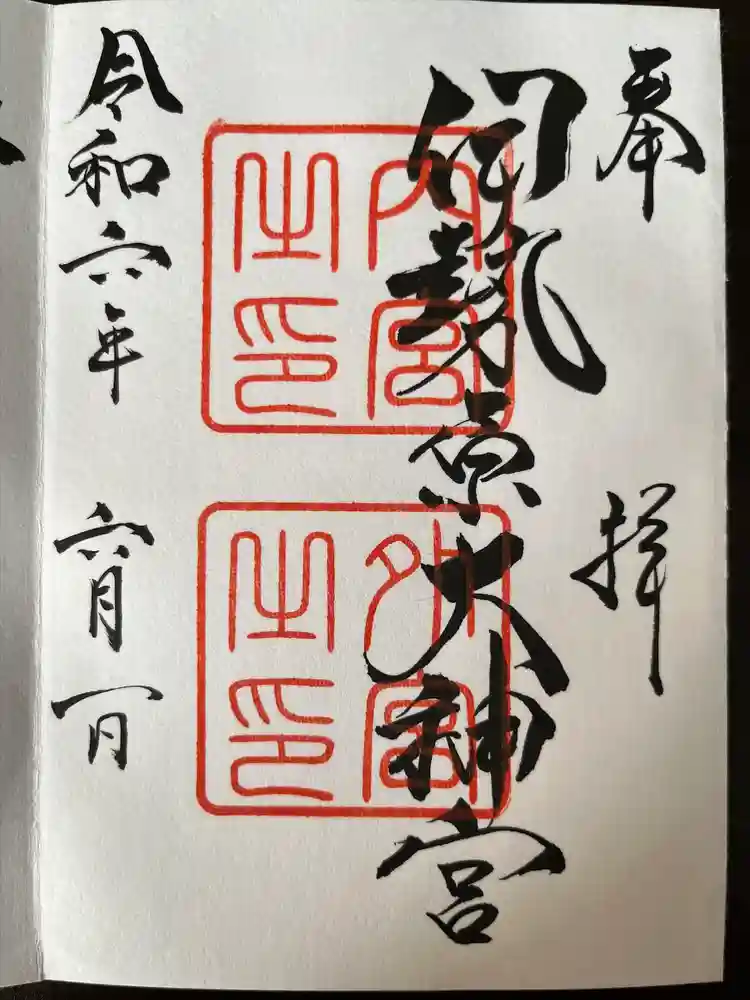 奉拝
伊勢原大神宮
内宮之印
外宮之印
令和六年六月一日